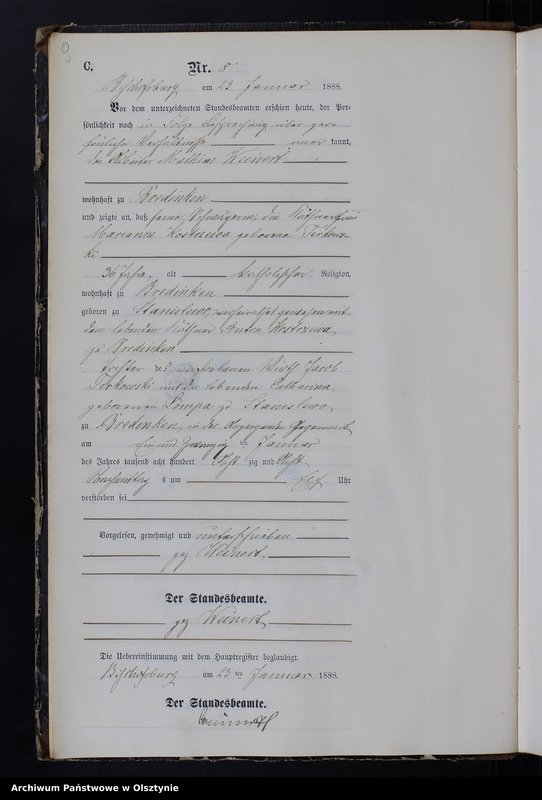 9
C.
Nr. 8
Bischofsburg am 23 Januar 1888.
Vor dem unterzeichneten Standesbeamten erschien heute, der Per-
sönlichkeit nach in Folge Besprechung über per-
sönliche Verhältnisse aner kannt,
der Arbeiter Mathias Weinert
wohnhaft zu Bredinken
und zeigte an, daß seine Schwägerin, die
Marianne Kostrzewa geborene
ki
36 Jahre, alt katholischer Religion,
wohnhaft zu Bredinken
geboren zu Stanislewo, verheirathet gewesen mit
dem lebenden Anton Kostrzewa,
zu Bredinken
Tochter des verstorbenen Wirth Jacob
und der lebenden Catharina,
geborenen Pompa zu Stanislewo,
zu Bredinken, in der Gegenwart
am Ein und Zwanzig ten Januar
des Jahres tausend acht hundert Acht zig und Acht
Vormittags um Elf Uhr
verstorben sei
Vorgelesen, genehmigt und unterschrieben
gez Weinert
Der Standesbeamte.
gez Weinert
Die Uebereinstimmung mit dem Hauptregister beglaubigt.
Bischofsburg am 23 ten Januar 1888.
Der Standesbeamte.
Archiwum Państwowe w Olsztynie